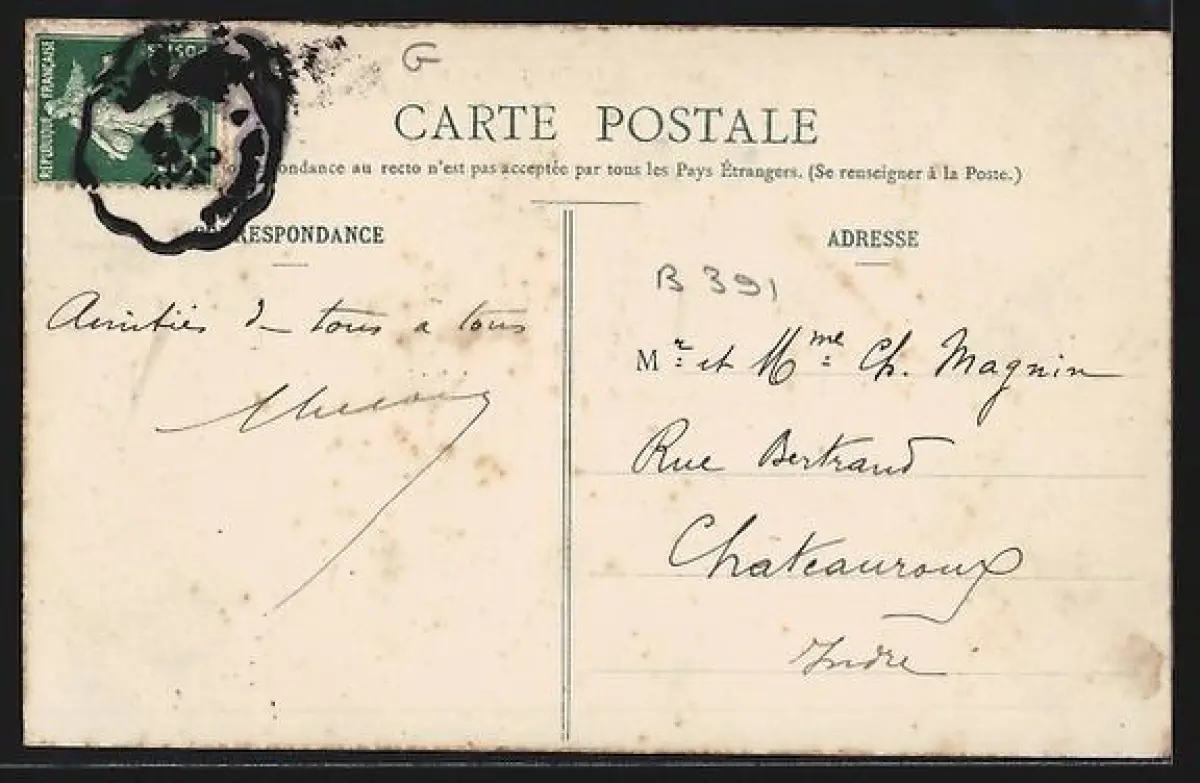 G
REPUBLIQUE FRANÇAISE
POSTES
CARTE POSTALE
ondance au recto n'est pas acceptée par tous les Pays Étrangers. (Se renseigner à la Poste.)
RESPONDANCE
ADRESSE
B 391
Amitiés de tous à tous
Mr et Mme Ch. Magnin
Rue Bertrand
Chateauroux
Indre